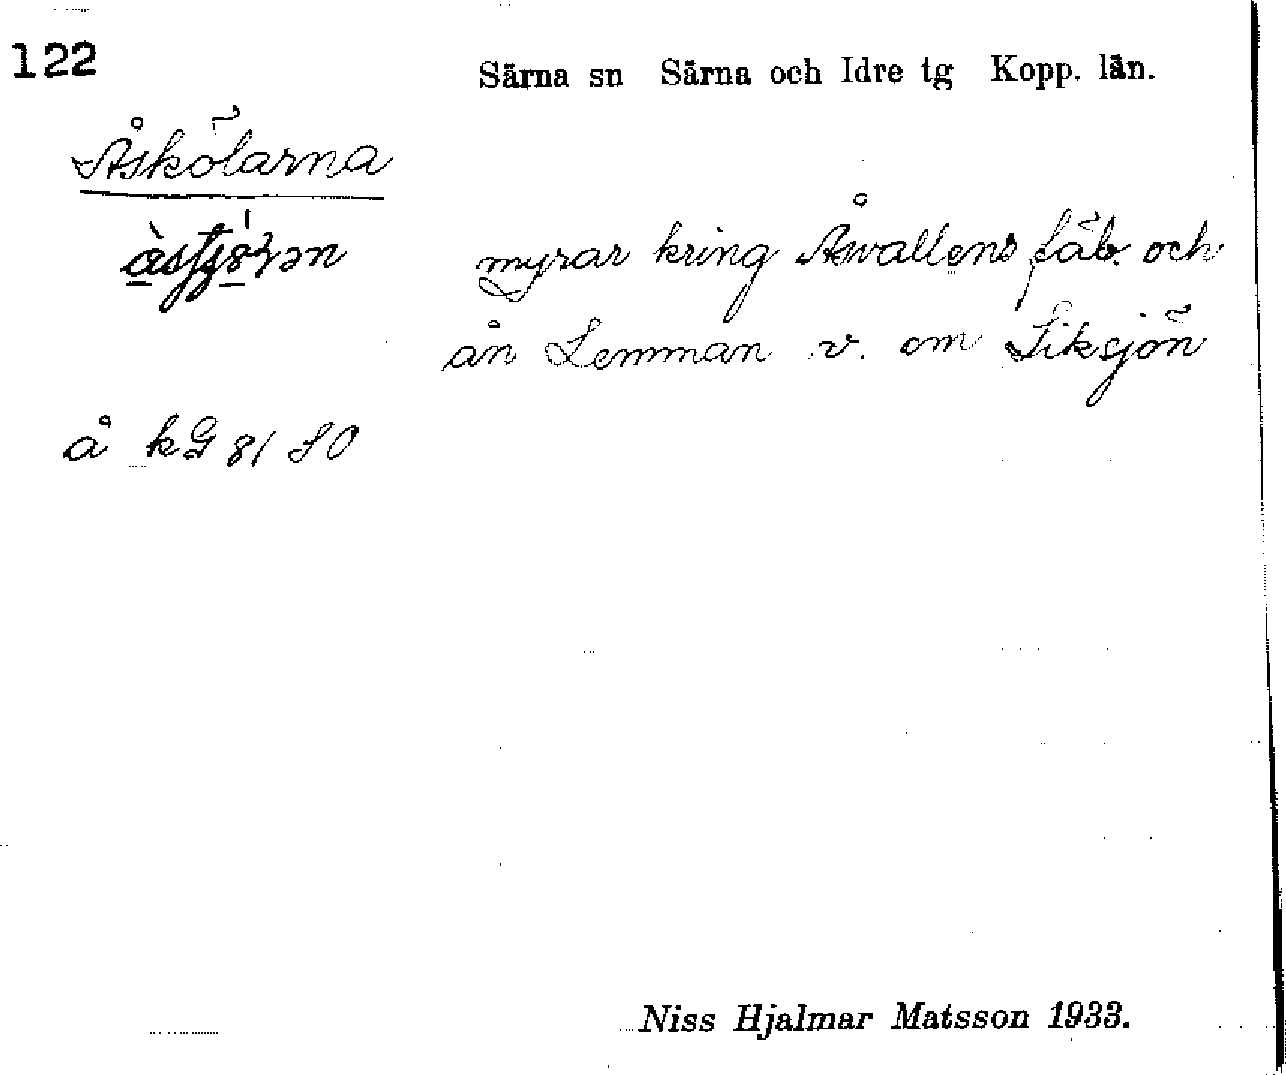 122
Särna sn Särna och Idre tg Kopp. län.
Åskölarna
myrar kring Åsvallens fäb. och
ån Lemman v. om Siksjön
å kG 81 SO
Niss Hjalmar Matsson 1933.